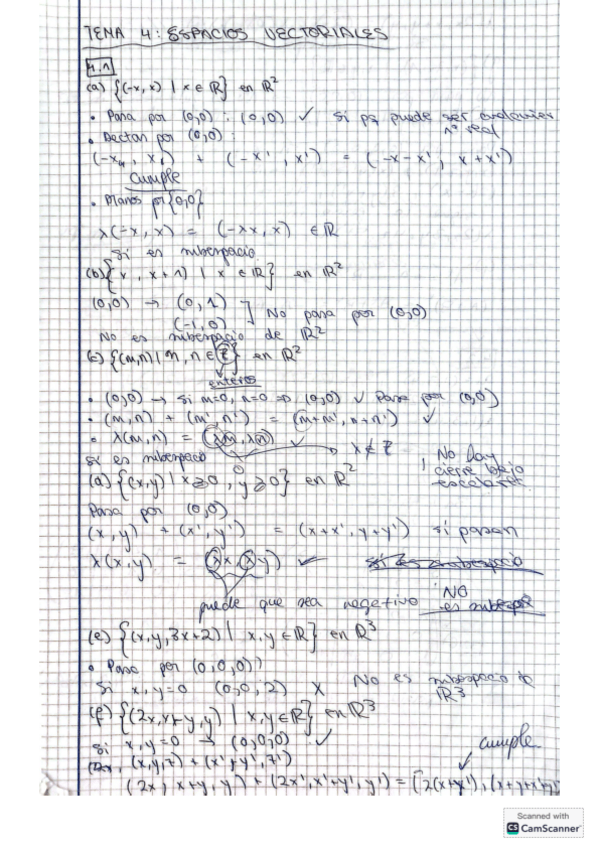 TEMA 4: ESPACIOS VECTORIALES
4.1
(a) {(-x, x) | x ∈ ℝ} en ℝ²
• Pasa por (0,0): (0,0) ✓ Si pq puede ser cualquier
nº real
• por (0,0):
(-x, x) + (-x', x') = (-x-x', x+x')
Cumple
• {0,0}
λ(-x, x) = (-λx, x) ∈ ℝ
Si es subespacio
(b) {x, x+1) | x ∈ ℝ} en ℝ²
(0,0) → (0,1)
(-1,0) ] No pasa por (0,0)
No es subespacio de ℝ²
(c) {(m,n) | m, n ∈ ℤ} en ℝ²
enteros
• (0,0) → Si m=0, n=0 ⇒ (0,0) ✓ Pasa por (0,0)
• (m,n) + (m',n') = (m+m', n+n') ✓
• λ(m,n) = (λm, λn) ✓ → λ ∉ ℤ
Si es subespacio
, No hay
cierre bajo
escalares.
(d) {(x,y) | x ≥ 0, y ≥ 0} en ℝ²
Pasa por (0,0)
(x, y) + (x', y') = (x+x', y+y') si pasan
λ(x, y) = (λx, λy) ✓ si es subespacio
puede que sea negativo NO
es subesp
(e) {(x, y, 3x+2) | x, y ∈ ℝ} en ℝ³
• Pasa por (0,0,0)?
Si x, y=0 (0,0,2) X No es subespacio de
ℝ³
(f) {(2x, x+y, y) | x, y ∈ ℝ} en ℝ³
Si x, y=0 → (0,0,0) ✓ cumple
(2x, (x,y,z) + (x',y',z')
(2x, x+y, y) + (2x', x'+y', y') = (2(x+x'), (x+y+x'+y'
Scanned with
CS CamScanner